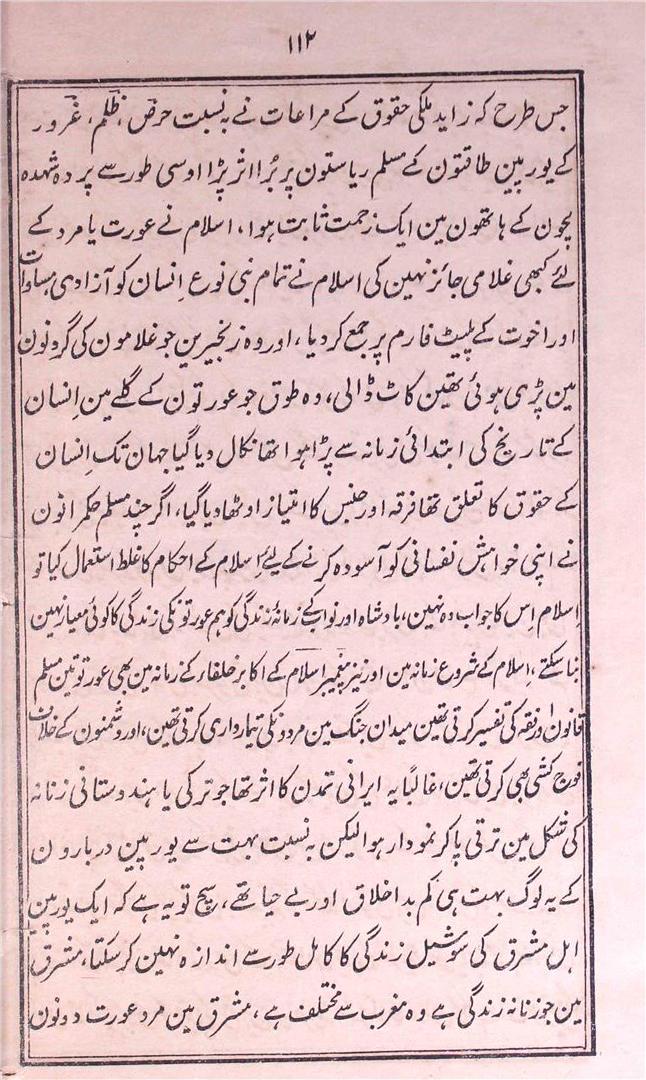 ۱۱۲
جس طرح کہ زاید ملکی حقوق کے مراعات نے بہ نسبت حرص، ظلم، غرور
کے یورپین طاقتون کے مسلم ریاستون پر بُرا اثر پڑا اوسی طور سے پردہ شہدہ
بچون کے ہاتھون مین ایک زحمت ثابت ہوا، اسلام نے عورت یا مرد کے
لئے کبھی غلامی جائز نہین کی اسلام نے تمام بنی نوع اِنسان کو آزادی مساوات
اور اخوت کے پلیٹ فارم پر جمع کر دیا، اور وہ زنجیرین جو غلامون کی گردنون
مین پڑی ہوئی تھین کاٹ ڈالی، وہ طوق جو عورتون کے گلے مین اِنسان
کے تاریخ کی ابتدائی زمانہ سے پڑا ہوا تھا نکال دیا گیا جہان تک اِنسان
کے حقوق کا تعلق تھا فرقہ اور جنس کا امتیاز اوٹھا دیا گیا، اگر چند مسلم حکمرانون
نے اپنی خواہش نفسانی کو آسودہ کرنے کے لیے اِسلام کے احکام کا غلط استعمال کیا تو
اِسلام اِس کا جواب دہ نہین، بادشاہ اور نواب کے زمانۂ زندگی کو ہم عورتونکی زندگی کا کوئی معیار نہین
بنا سکتے، اِسلام کے شروع زمانہ مین اور نیز پیغمبر اسلام کے اکابر خلفاء کے زمانہ مین بھی عورتین مسلم
قانون اور فقہ کی تفسیر کرتی تھین میدان جنگ مین مردونکی تیمارداری کرتی تھین، اور دشمنون کے خلاف
فوج کشی بھی کرتی تھین، غالباً یہ ایرانی تمدن کا اثر تھا جو ترکی یا ہندوستانی زنانہ
کی شکل مین ترقی پاکر نمودار ہوا لیکن بہ نسبت بہت سے یورپین دربارون
کے یہ لوگ بہت ہی کم بداخلاق اور بے حیا تھے، سچ تو یہ ہے کہ ایک یورپین
اہل مشرق کی سوشیل زندگی کا کامل طور سے اندازہ نہین کر سکتا، مشرق
مین جو زنانہ زندگی ہے وہ مغرب سے مختلف ہے، مشرق مین مرد عورت دونون